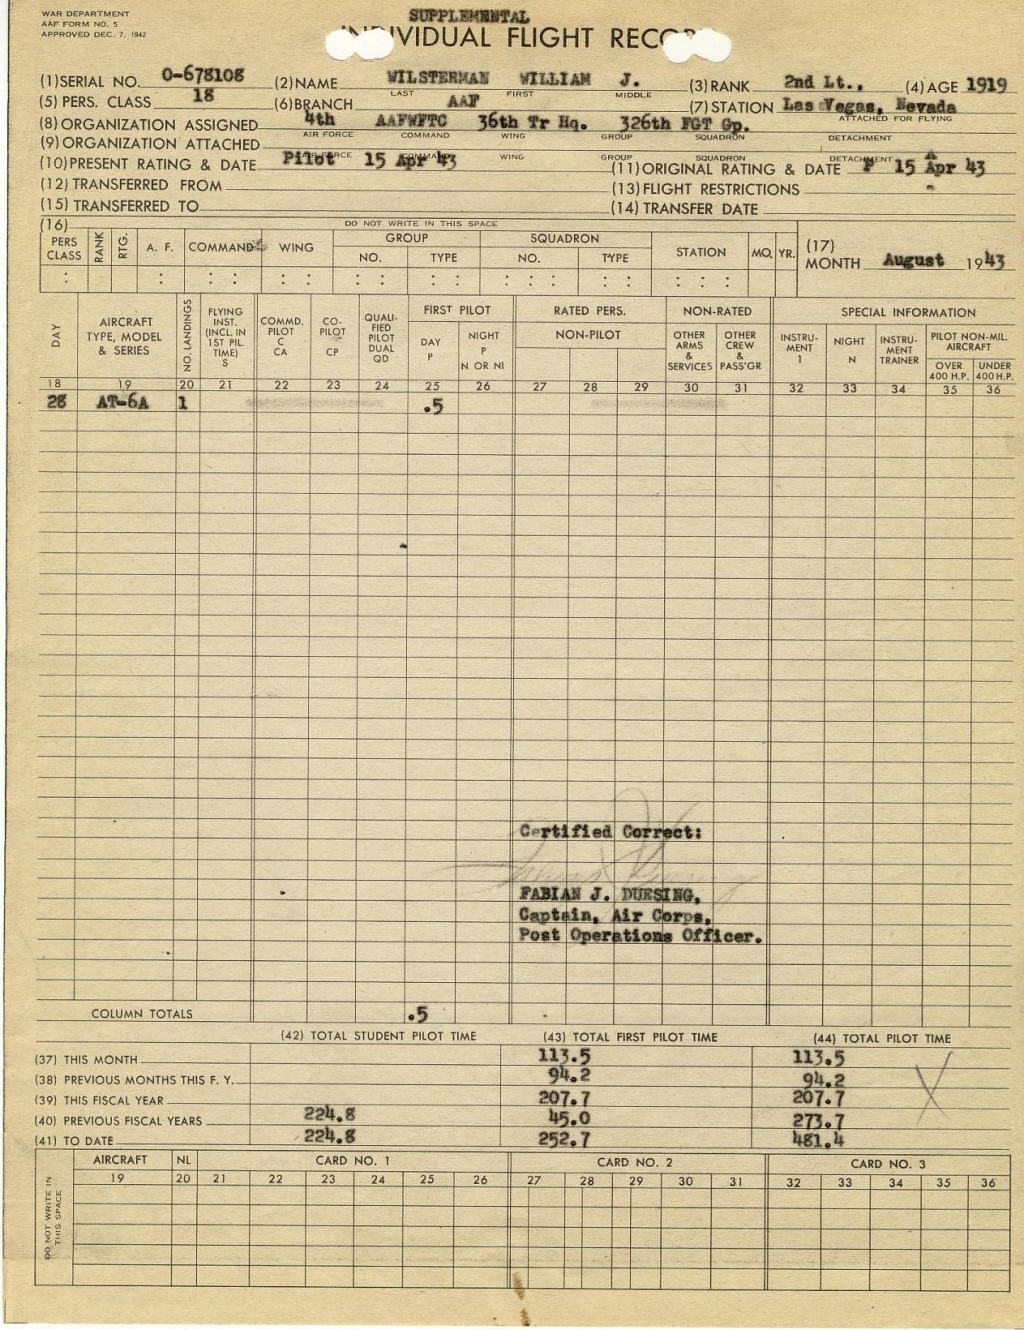 WAR DEPARTMENT
AAF FORM NO. 5
APPROVED DEC. 7, 1942
SUPPLEMENTAL
INDIVIDUAL FLIGHT RECORD
(1) SERIAL NO. 0-678108 (2) NAME WILSTERMAN WILLIAM J. (3) RANK 2nd Lt., (4) AGE 1919
LAST FIRST MIDDLE
(5) PERS. CLASS 18 (6) BRANCH AAF (7) STATION Las Vegas, Nevada
ATTACHED FOR FLYING
(8) ORGANIZATION ASSIGNED 4th AAFWFTC 36th Tr Hq. 326th FGT Gp.
AIR FORCE COMMAND WING GROUP SQUADRON DETACHMENT
(9) ORGANIZATION ATTACHED
AIR FORCE COMMAND WING GROUP SQUADRON DETACHMENT
(10) PRESENT RATING & DATE Pilot 15 Apr 43 (11) ORIGINAL RATING & DATE P 15 Apr 43
(12) TRANSFERRED FROM (13) FLIGHT RESTRICTIONS -
(15) TRANSFERRED TO (14) TRANSFER DATE
(16) DO NOT WRITE IN THIS SPACE
PERS CLASS RANK RTG. A. F. COMMAND WING GROUP NO. TYPE SQUADRON NO. TYPE STATION MO. YR.
(17) MONTH August 1943
DAY AIRCRAFT TYPE, MODEL & SERIES NO. LANDINGS FLYING INST. (INCL. IN 1ST PIL. TIME) S COMMD. PILOT C CA CO-PILOT CP QUALIFIED PILOT DUAL QD FIRST PILOT DAY P NIGHT P N OR NI RATED PERS. NON-PILOT NON-RATED OTHER ARMS & SERVICES OTHER CREW & PASS'GR SPECIAL INFORMATION INSTRUMENT I NIGHT N INSTRUMENT TRAINER PILOT NON-MIL. AIRCRAFT OVER 400 H.P. UNDER 400 H.P.
18 19 20 21 22 23 24 25 26 27 28 29 30 31 32 33 34 35 36
28 AT-6A 1 .5
Certified Correct:
FABIAN J. DUESING,
Captain, Air Corps,
Post Operations Officer.
COLUMN TOTALS .5
(42) TOTAL STUDENT PILOT TIME (43) TOTAL FIRST PILOT TIME (44) TOTAL PILOT TIME
(37) THIS MONTH 113.5 113.5
(38) PREVIOUS MONTHS THIS F. Y. 94.2 94.2
(39) THIS FISCAL YEAR 207.7 207.7
(40) PREVIOUS FISCAL YEARS 224.8 45.0 273.7
(41) TO DATE 224.8 252.7 481.4
DO NOT WRITE IN THIS SPACE
AIRCRAFT NL CARD NO. 1 CARD NO. 2 CARD NO. 3
19 20 21 22 23 24 25 26 27 28 29 30 31 32 33 34 35 36